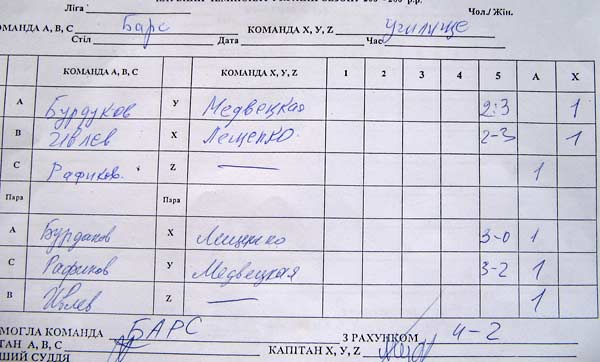 Ліга Чол./Жін.
КОМАНДА А, В, С Барс КОМАНДА X, Y, Z Училище
Стіл Дата Час
КОМАНДА А, В, С КОМАНДА X, Y, Z 1 2 3 4 5 А X
А Бурдуков У Медвецкая 2:3 1
В Ивлєв X Лещенко 2-3 1
С Рафиков. Z — 1
Пара Пара
А Бурдаков X Лищенко 3-0 1
С Рафиков У Медвецкая 3-2 1
В Ивлев Z — 1
МОГЛА КОМАНДА БАРС З РАХУНКОМ 4-2
ТАН А, В, С КАПІТАН X, У, Z
ШИЙ СУДДЯ